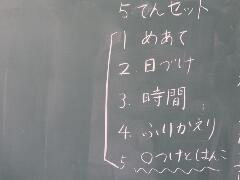 5.てんセット
1 めあて
2.日づけ
3.時間
4.ふりかえり
5.○つけとはんこ